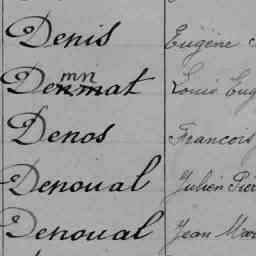 Denis Eugène
Denmat Louis Eug
Denos Francois
Denoual Julien Pier
Denoual Jean Mar